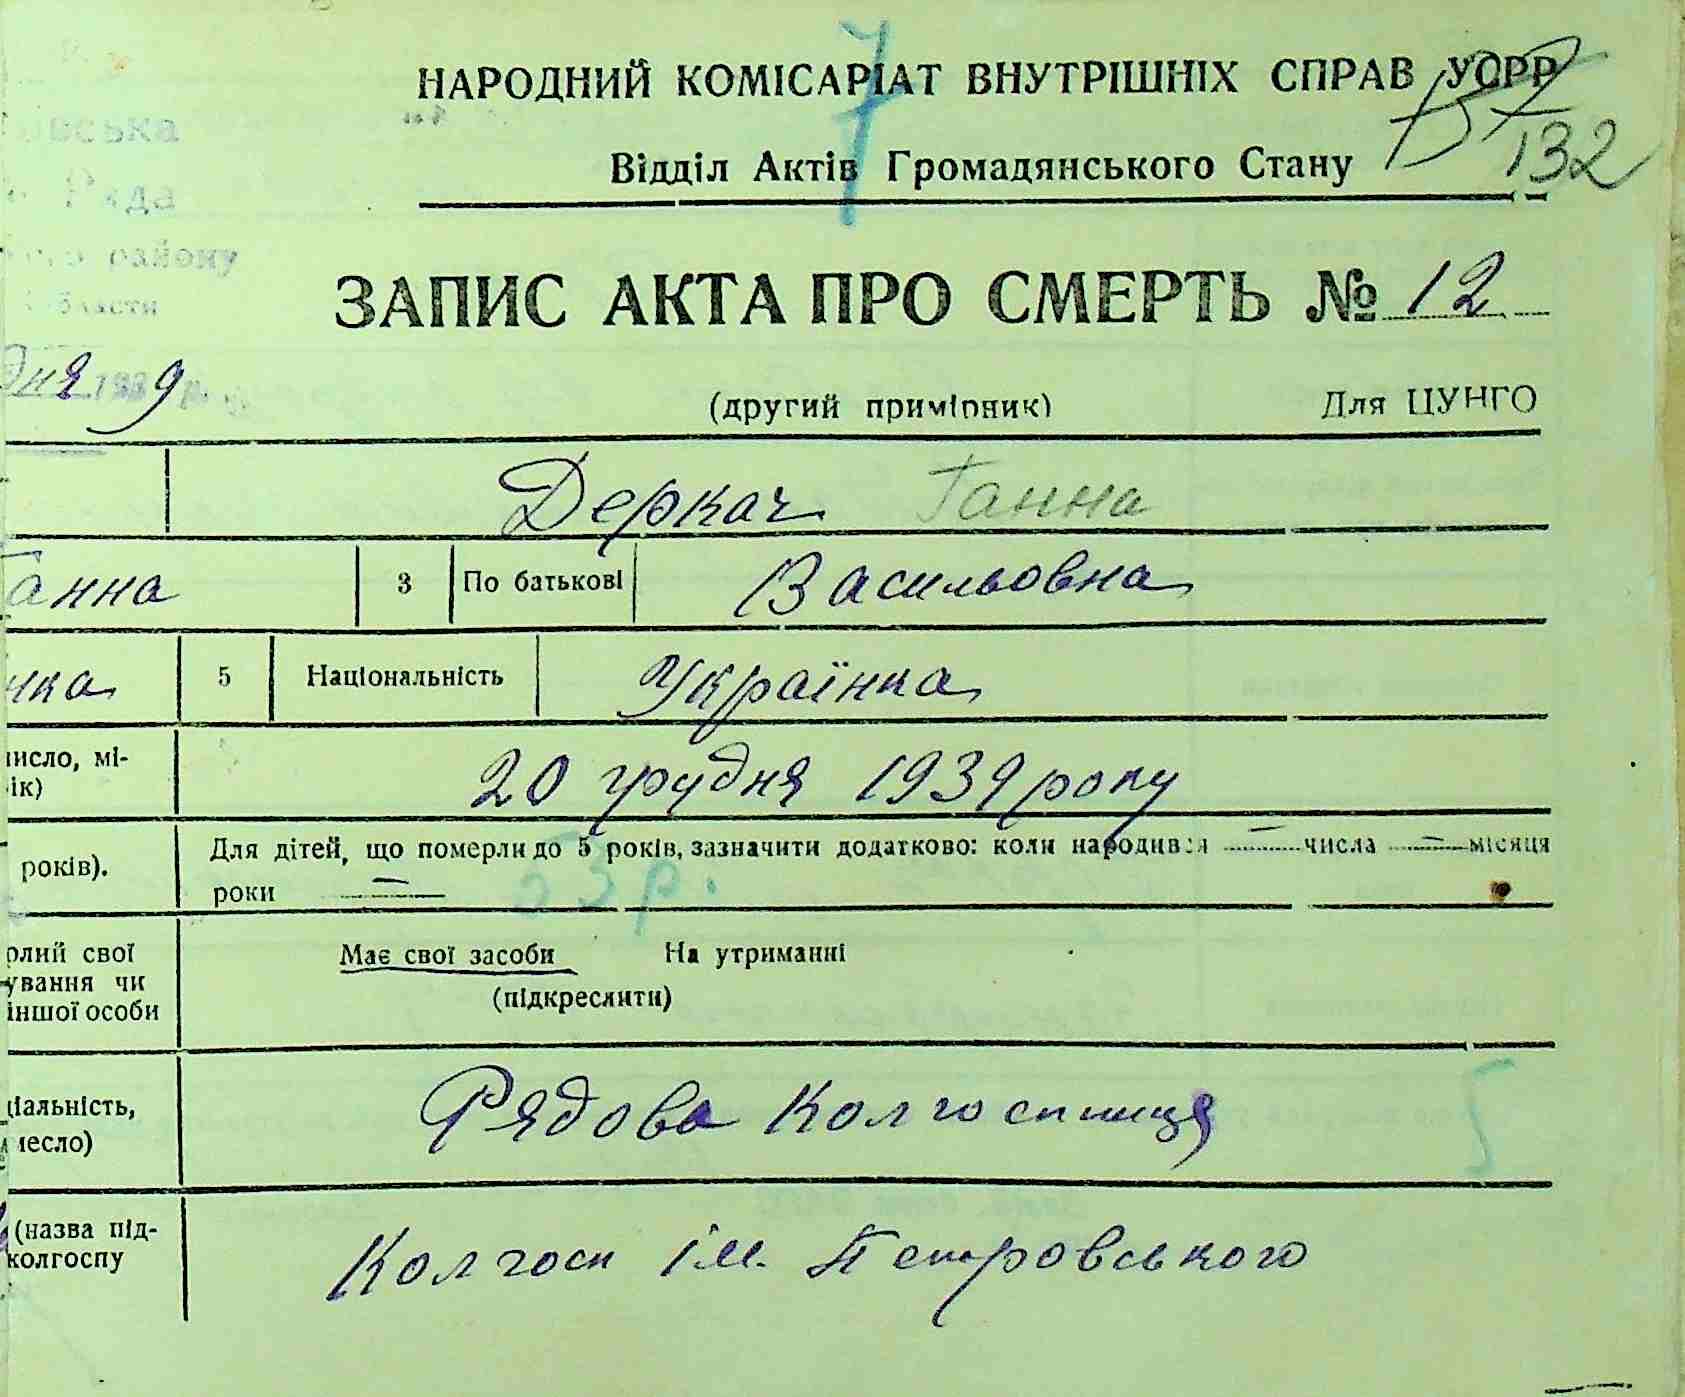 НАРОДНИЙ КОМІСАРІАТ ВНУТРІШНІХ СПРАВ УСРР
132
Відділ Актів Громадянського Стану
7
Рада
району
області
ЗАПИС АКТА ПРО СМЕРТЬ № 12
дня 1939 р.
(другий примірник) Для ЦУНГО
Деркач Ганна
Ганна 3 По батькові Васильовна
нка 5 Національність Українка
число, мі-
ік) 20 грудня 1939 року
Для дітей, що померли до 5 років, зазначити додатково: коли народився — числа — місяця
років).
роки — 53 р.
рлий свої Має свої засоби На утриманні
ування чи (підкреслити)
іншої особи
ціальність, Рядова Колгоспниця
месло)
(назва під-
колгоспу Колгосп ім. Петровського